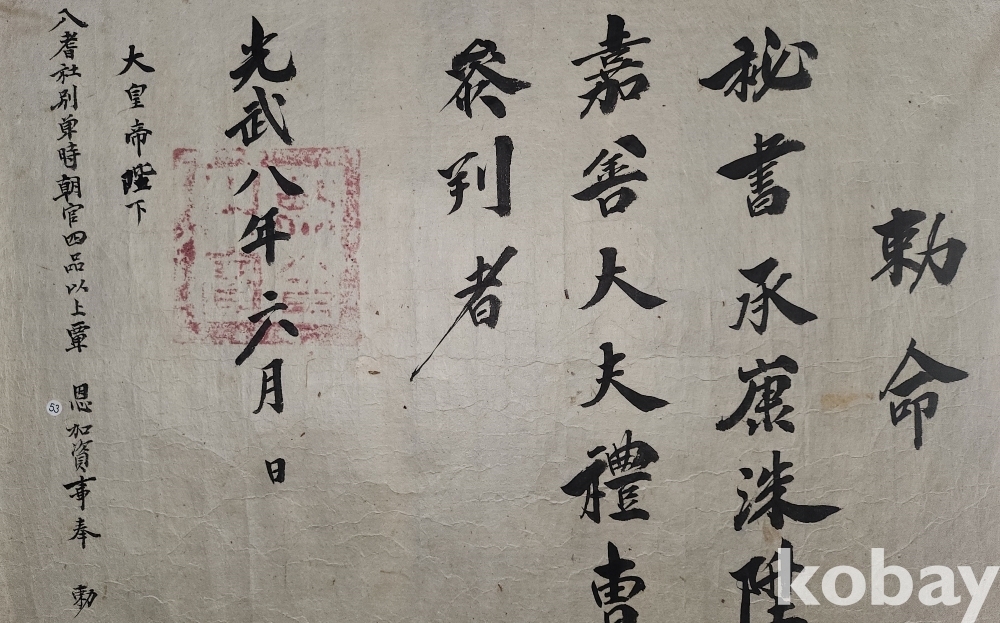 勅命
秘書承康洙陞
嘉善大夫禮曹
叅判者
光武八年六月 日
大皇帝陛下
八耆社別单時朝官四品以上覃 恩加資事奉 勅
53
kobay